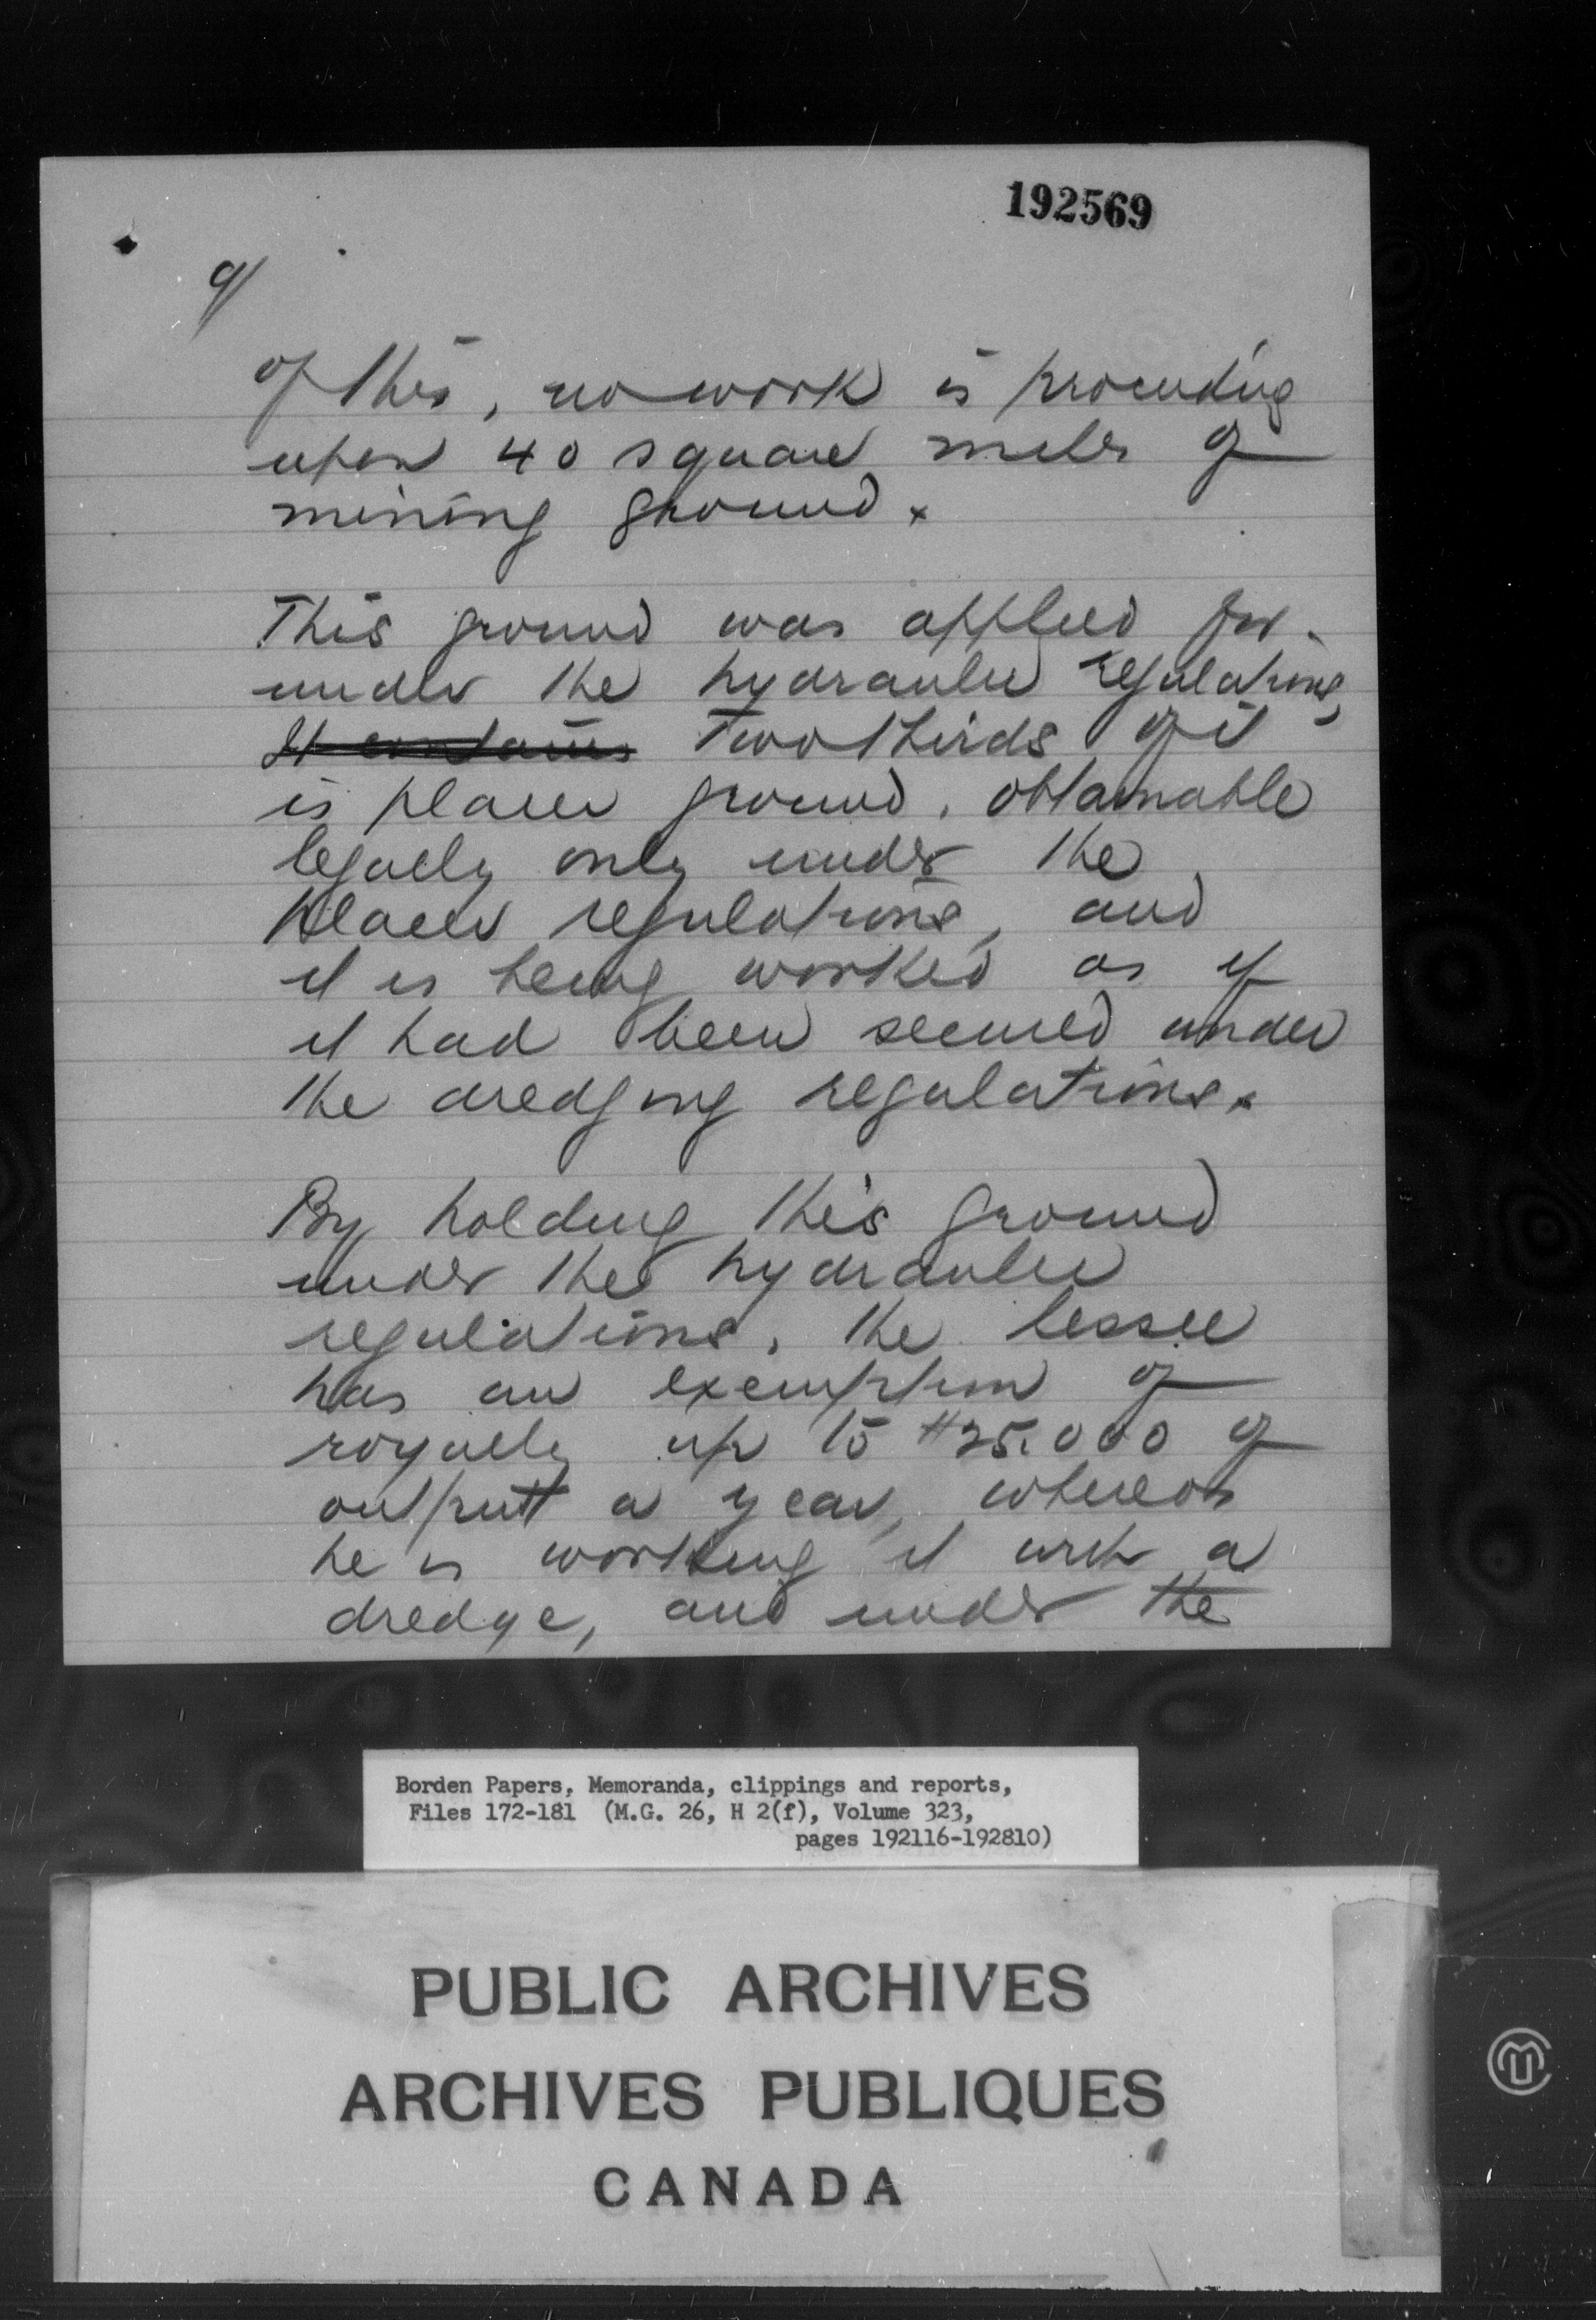 192569
9/
of this, no work is proceeding
upon 40 square miles of
mining ground x
This ground was applied for
under the hydraulic regulations,
It contains Two thirds of it
is placer ground, obtainable
legally only under the
placer regulations, and
it is being worked as if
it had been secured under
the dredging regulations x
By holding this ground
under the hydraulic
regulations, the lessee
has an exemption of
royalty up to $25,000 of
output a year, whereas
he is working it with a
dredge, and under the
Borden Papers, Memoranda, clippings and reports,
Files 172-181 (M.G. 26, H 2(f), Volume 323,
pages 192116-192810)
PUBLIC ARCHIVES
ARCHIVES PUBLIQUES
CANADA